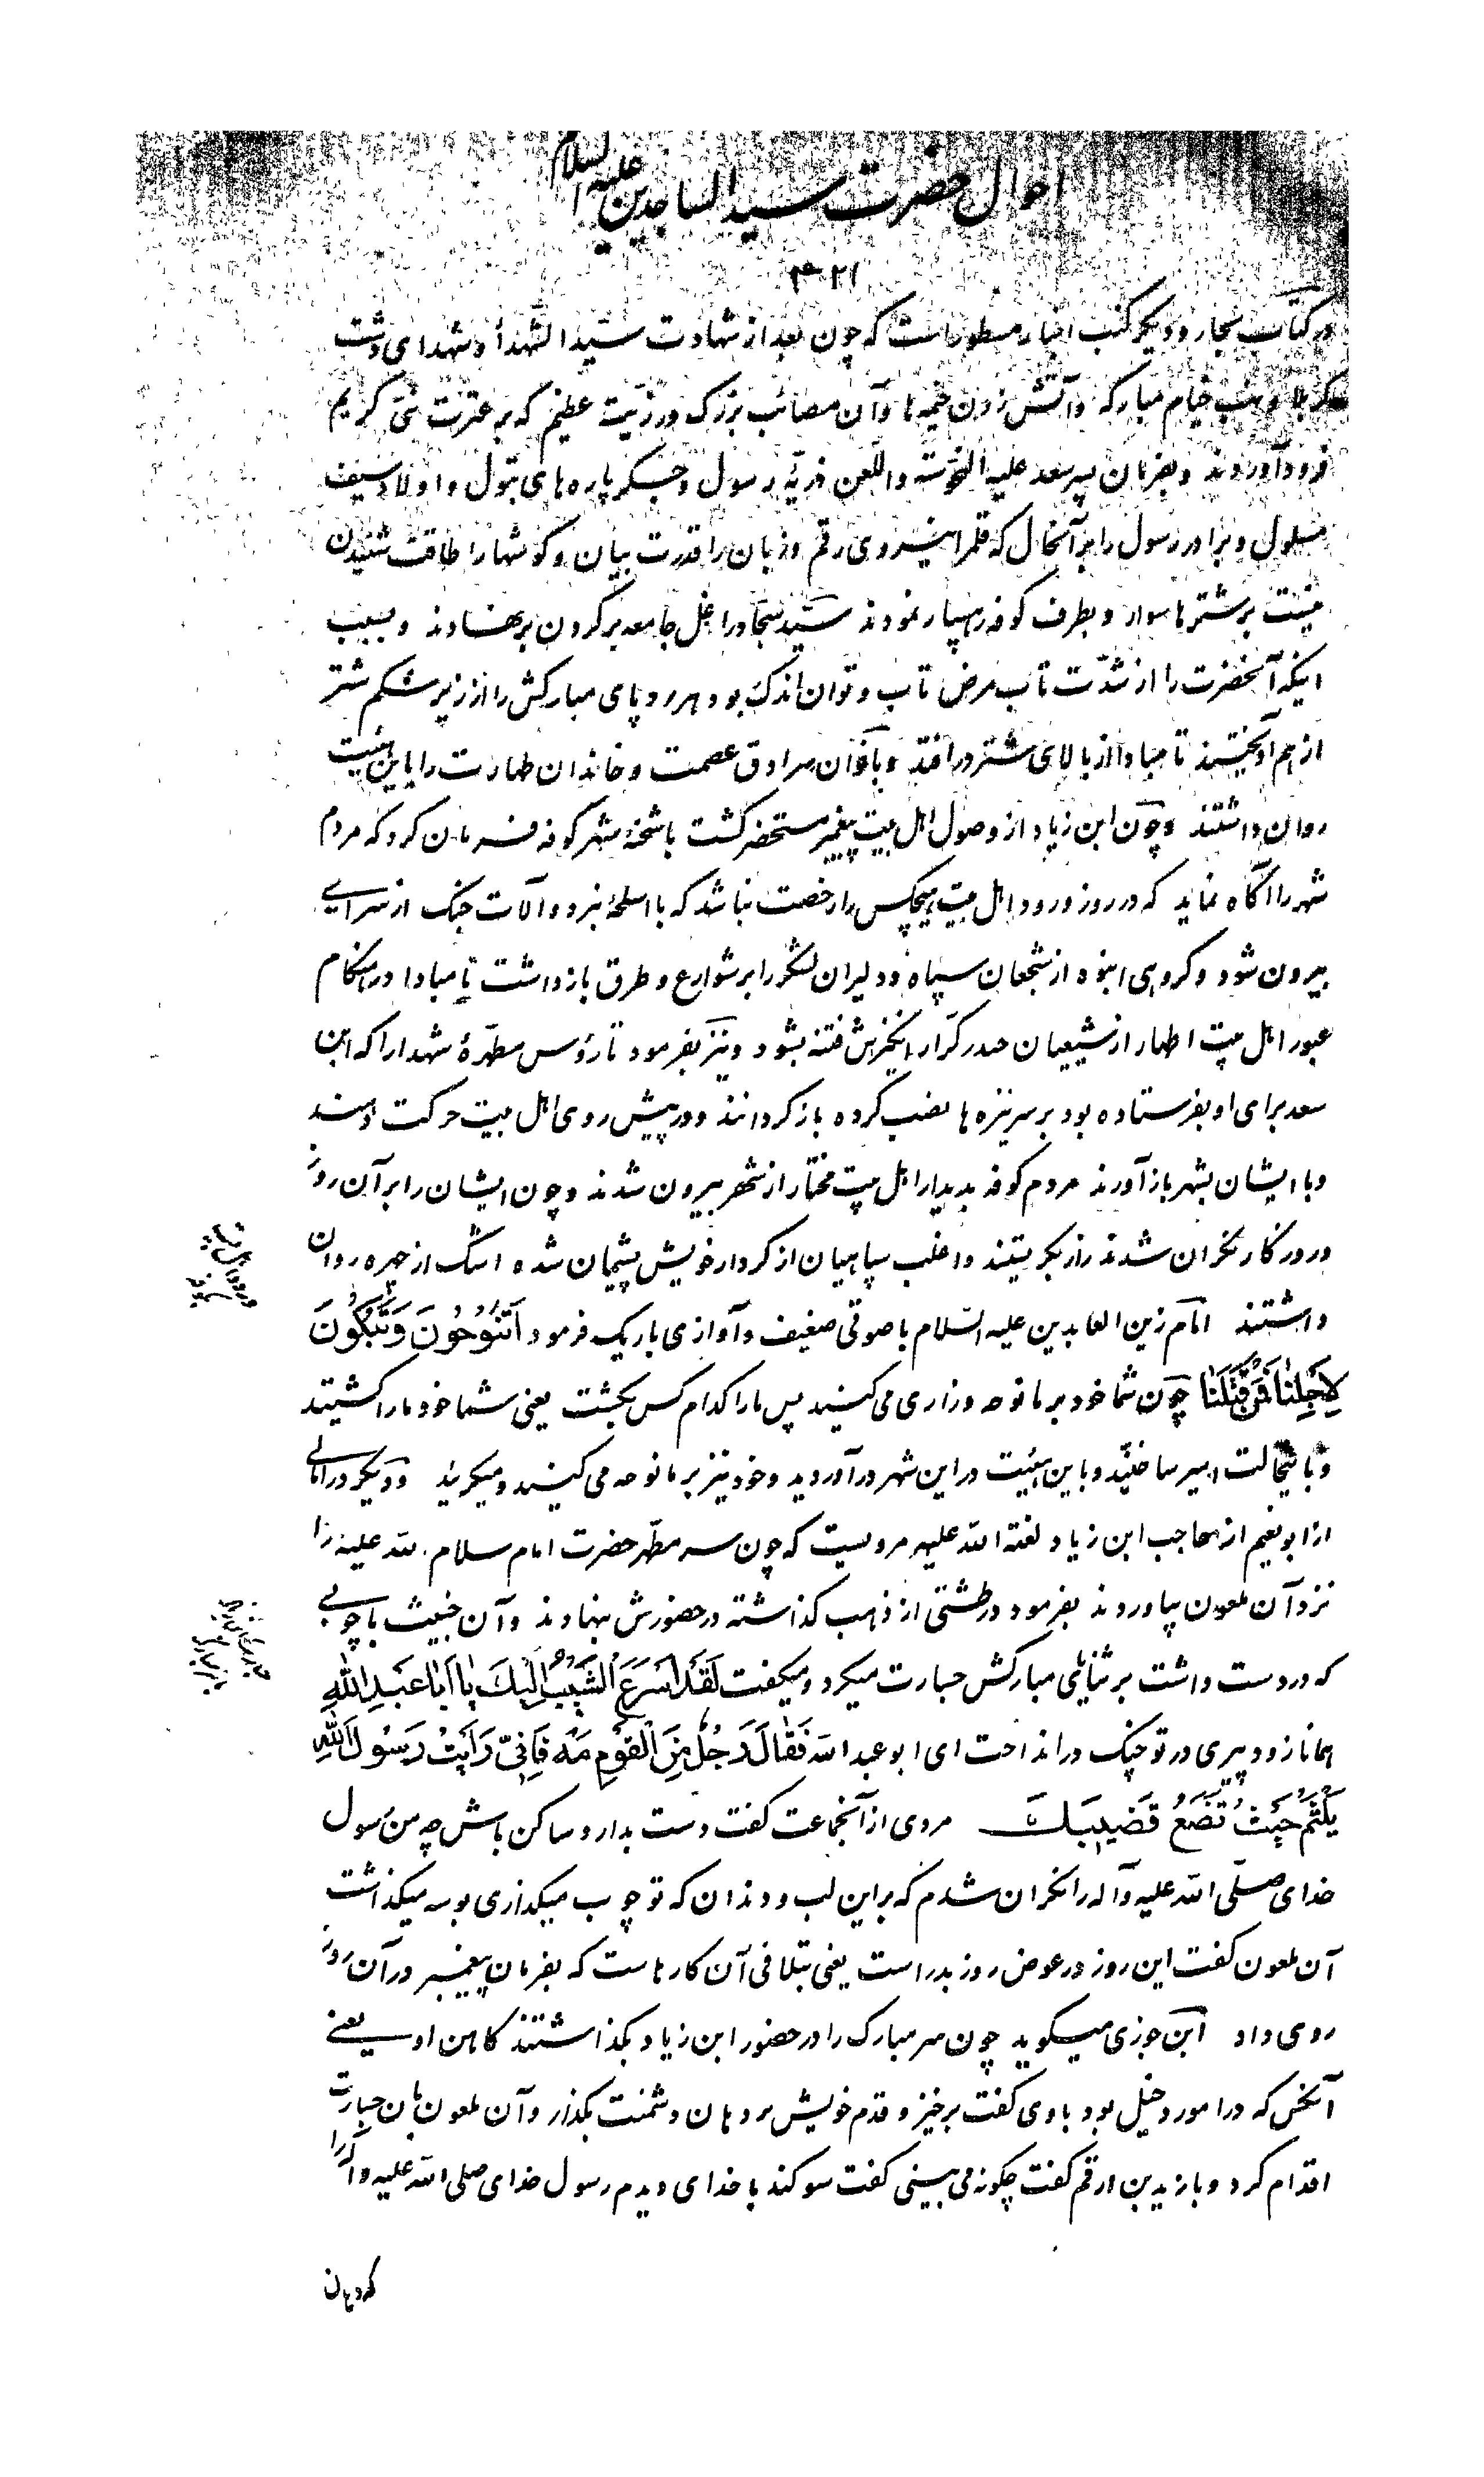 احوال حضرت سید الساجدین علیه السلام
در کتاب بحار و دیگر کتب اخبار مسطور است که چون بعد از شهادت سیّد الشّهدآء و شهدای دشت
کربلا و نهب خیام مبارکه و آتش زدن خیمه ها و آن مصائب بزرک و رزیّت عظیم که بر عترت نبی کریم
فرود آوردند و بفرمان پسر سعد علیه النّحوسته و اللّعن ذریّه رسول و جگر پاره های بتول و اولاد سیف
مسلول و برادر رسول را بر آنحال که قلم را نیروی رقم و زبان را قدرت بیان و گوشها را طاقت شنیدن
نیست بر شترها سوار و بطرف کوفه رهسپار نمودند سیّد سجّاد را غل جامعه بر گردن بر نهادند و بسبب
اینکه آنحضرت را از شدّت تاب مرض تاب و توان اندک بود هر دو پای مبارکش را از زیر شکم شتر
از هم آویختند تا مبادا از بالای شتر در افتد و بانوان سرادق عصمت و خاندان طهارت را باین هیئت
روان داشتند و چون ابن زیاد از وصول اهل بیت پیغمبر مستحضر گشت با شحنهٔ شهر کوفه فرمان کرد که مردم
شهر را آگاه نماید که در روز ورود اهل بیت هیچکس را رخصت نباشد که با اسلحهٔ نبرد و آلات جنگ از سرای
بیرون شود و گروهی انبوه از شجعان سپاه و دلیران لشکر را بر شوارع و طرق باز داشت تا مبادا در هنگام
عبور اهل بیت اطهار از شیعیان حیدر کرّار انگیزش فتنه بشود و نیز بفرمود تا رؤس مطهّرهٔ شهدا را که ابن
سعد برای او بفرستاده بود بر سر نیزه ها نصب کرده باز گردانند و در پیش روی اهل بیت حرکت دهند
و با ایشان بشهر باز آورند مردم کوفه بدیدار اهل بیت مختار از شهر بیرون شدند و چون ایشان را بر آن روز
و روزگار نگران شدند زار بگریستند و اغلب سپاهیان از کردار خویش پشیمان شده اشک از چهره روان
داشتند امام زین العابدین علیه السّلام با صوتی ضعیف و آوازی باریک فرمود اَتَنُوحُونَ وَ تَبْکُونَ
لِاَجْلِنَا فَمَنْ قَتَلَنَا چون شما خود بر ما نوحه و زاری می کنید پس ما را کدام کس بکشت یعنی شما خود ما را کشتید
و باینحالت اسیر ساختید و باین هیئت در این شهر در آوردید و خود نیز بر ما نوحه می کنید و میگریئد و دیگر در امالی
از ابو نعیم از حاجب ابن زیاد لعنة الله علیهم مرویست که چون سر مطهّر حضرت امام سلام الله علیه را
نزد آن ملعون بیاوردند بفرمود در طشتی از ذهب گذاشته در حضورش بنهادند و آن خبیث با چوبی
که در دست داشت بر ثنایای مبارکش جسارت میکرد و میگفت لَقَدْ اَسْرَعَ الشَّیْبُ اِلَیْکَ یَا اَبَا عَبْدِ اللهِ
همانا زود پیری در تو چنگ در انداخت ای ابو عبد الله فَقَالَ رَجُلٌ مِنَ الْقَوْمِ مَهْ فَاِنّی رَاَیْتُ رَسُولَ اللهِ
یَلْثَمُ حَیْثُ تَضَعُ قَضِیبَکَ مردی از آنجماعت گفت دست بدار و ساکن باش چه من رسول
خدای صلّی الله علیه و آله را نگران شدم که بر این لب و دندان که تو چوب میگذاری بوسه میگذاشت
آن ملعون گفت این روز در عوض روز بدر است یعنی بتلافی آن کارهاست که بفرمان پیغمبر در آن روز
روی داد ابن جوزی میگوید چون سر مبارک را در حضور ابن زیاد بگذاشتند کاهن او یعنی
آنکس که در امور دخیل بود با وی گفت برخیز و قدم خویش بر دهان دشمنت بگذار و آن ملعون بآن جسارت
اقدام کرد و با زید بن ارقم گفت چگونه می بینی گفت سوگند با خدای دیدم رسول خدای صلی الله علیه و آله را
که دهان